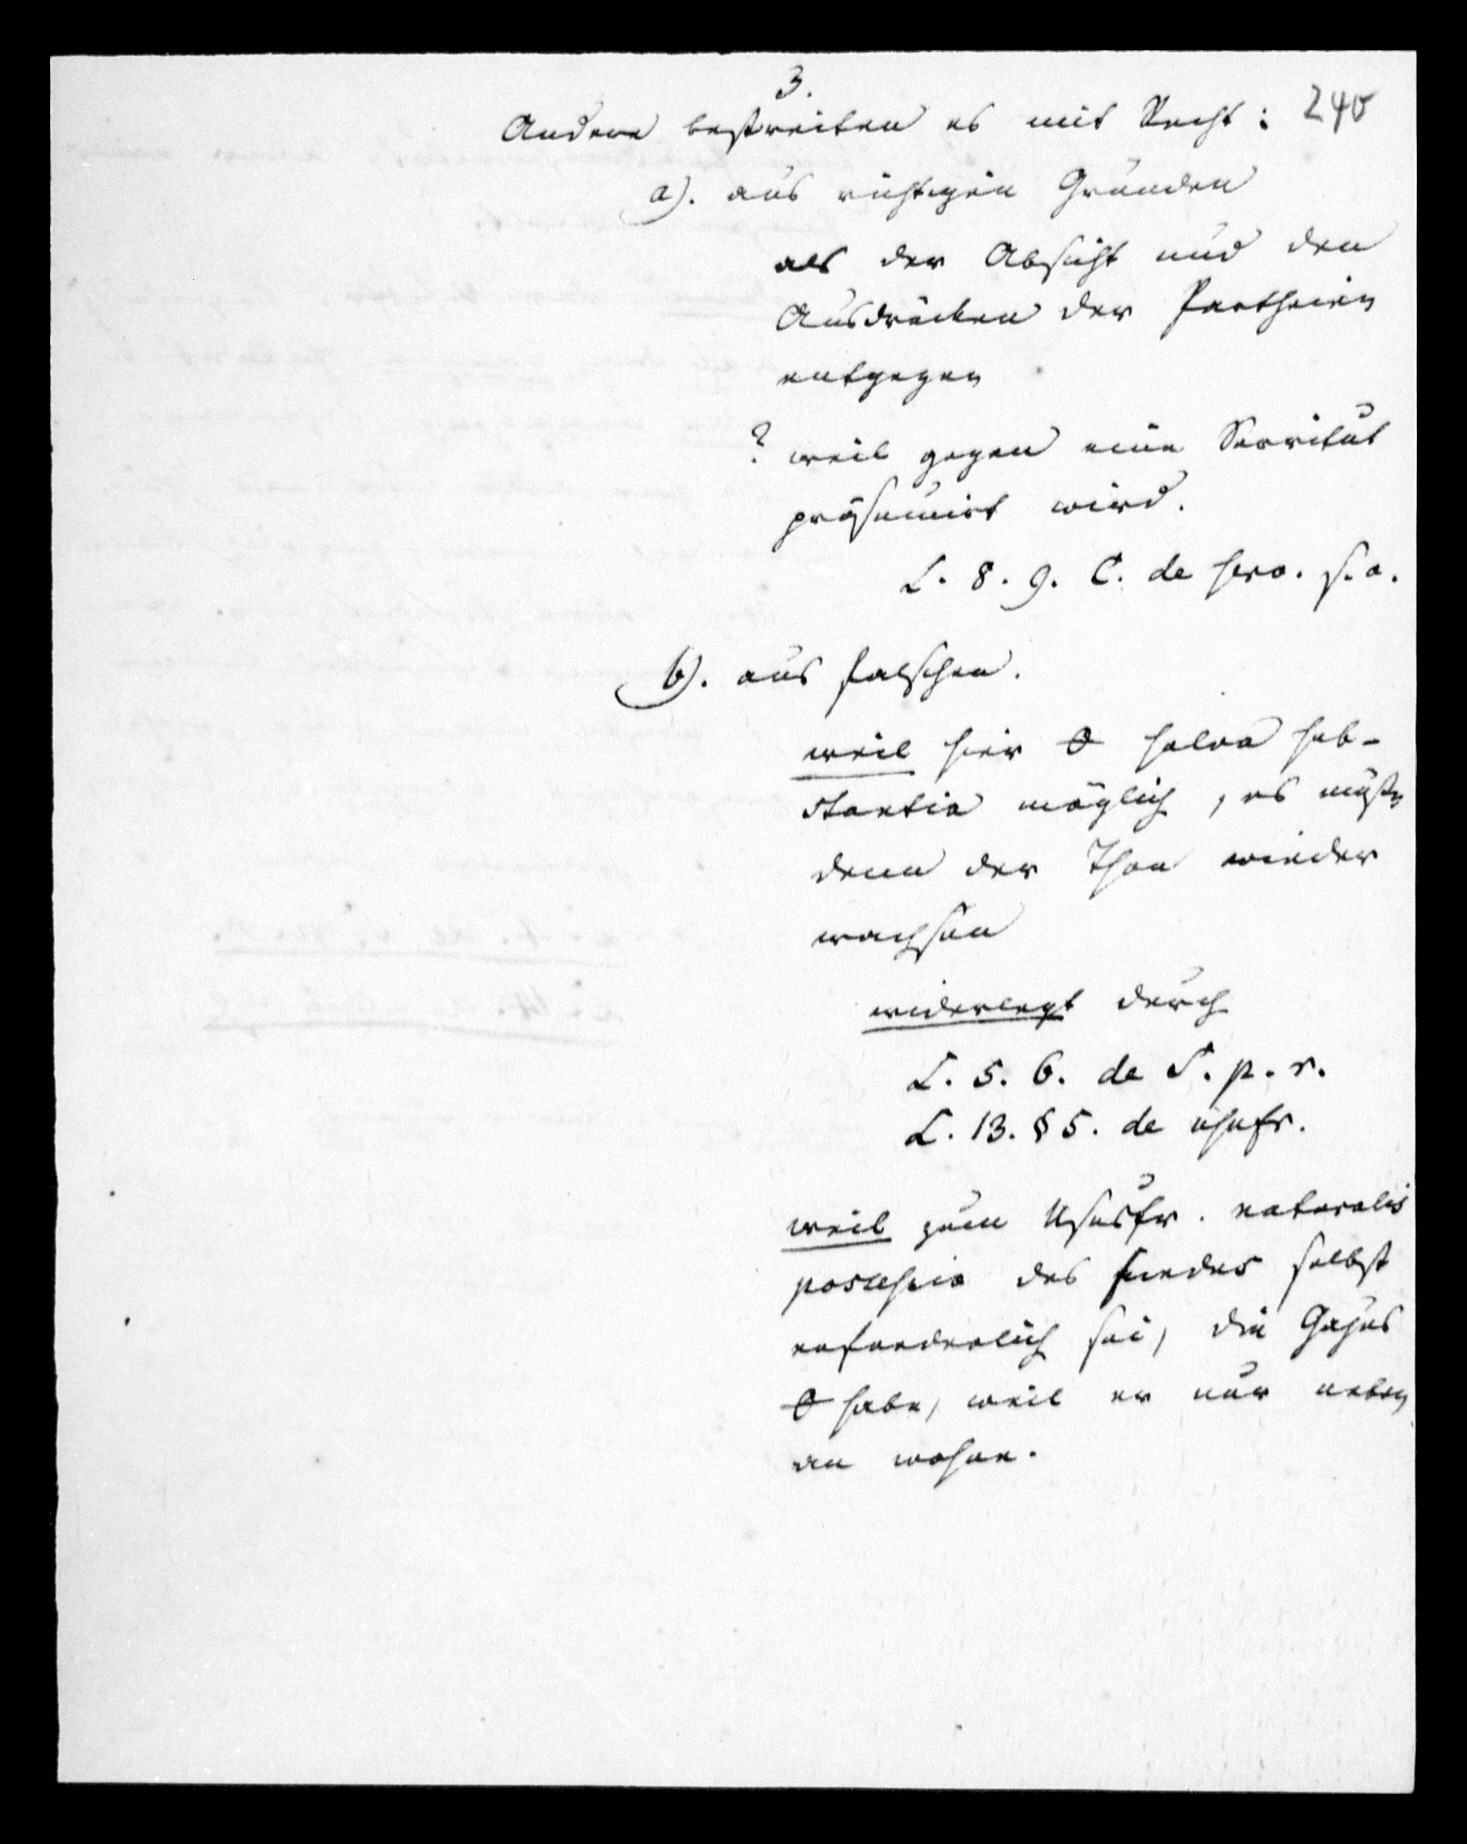 3.
240
Andere bestreiten es mit Recht:
a). aus richtigen Gründen
als der Absicht und den
Ausdrücken der Partheien
entgegen
? weil gegen eine Servitut
präsumirt wird.
L. 8. 9. C. de serv. s. a.
b). aus falschen.
weil hier θ salva sub-
stantia möglich, es müßte
denn der Thon wieder
wachsen
widerlegt durch
L. 5. 6. de S. p. r.
L. 13. § 5. de usufr.
weil zum Ususfr. naturalis
possessio des fundus selbst
erforderlich sei, die Gajus
θ habe, weil er nur neben
an wohne.